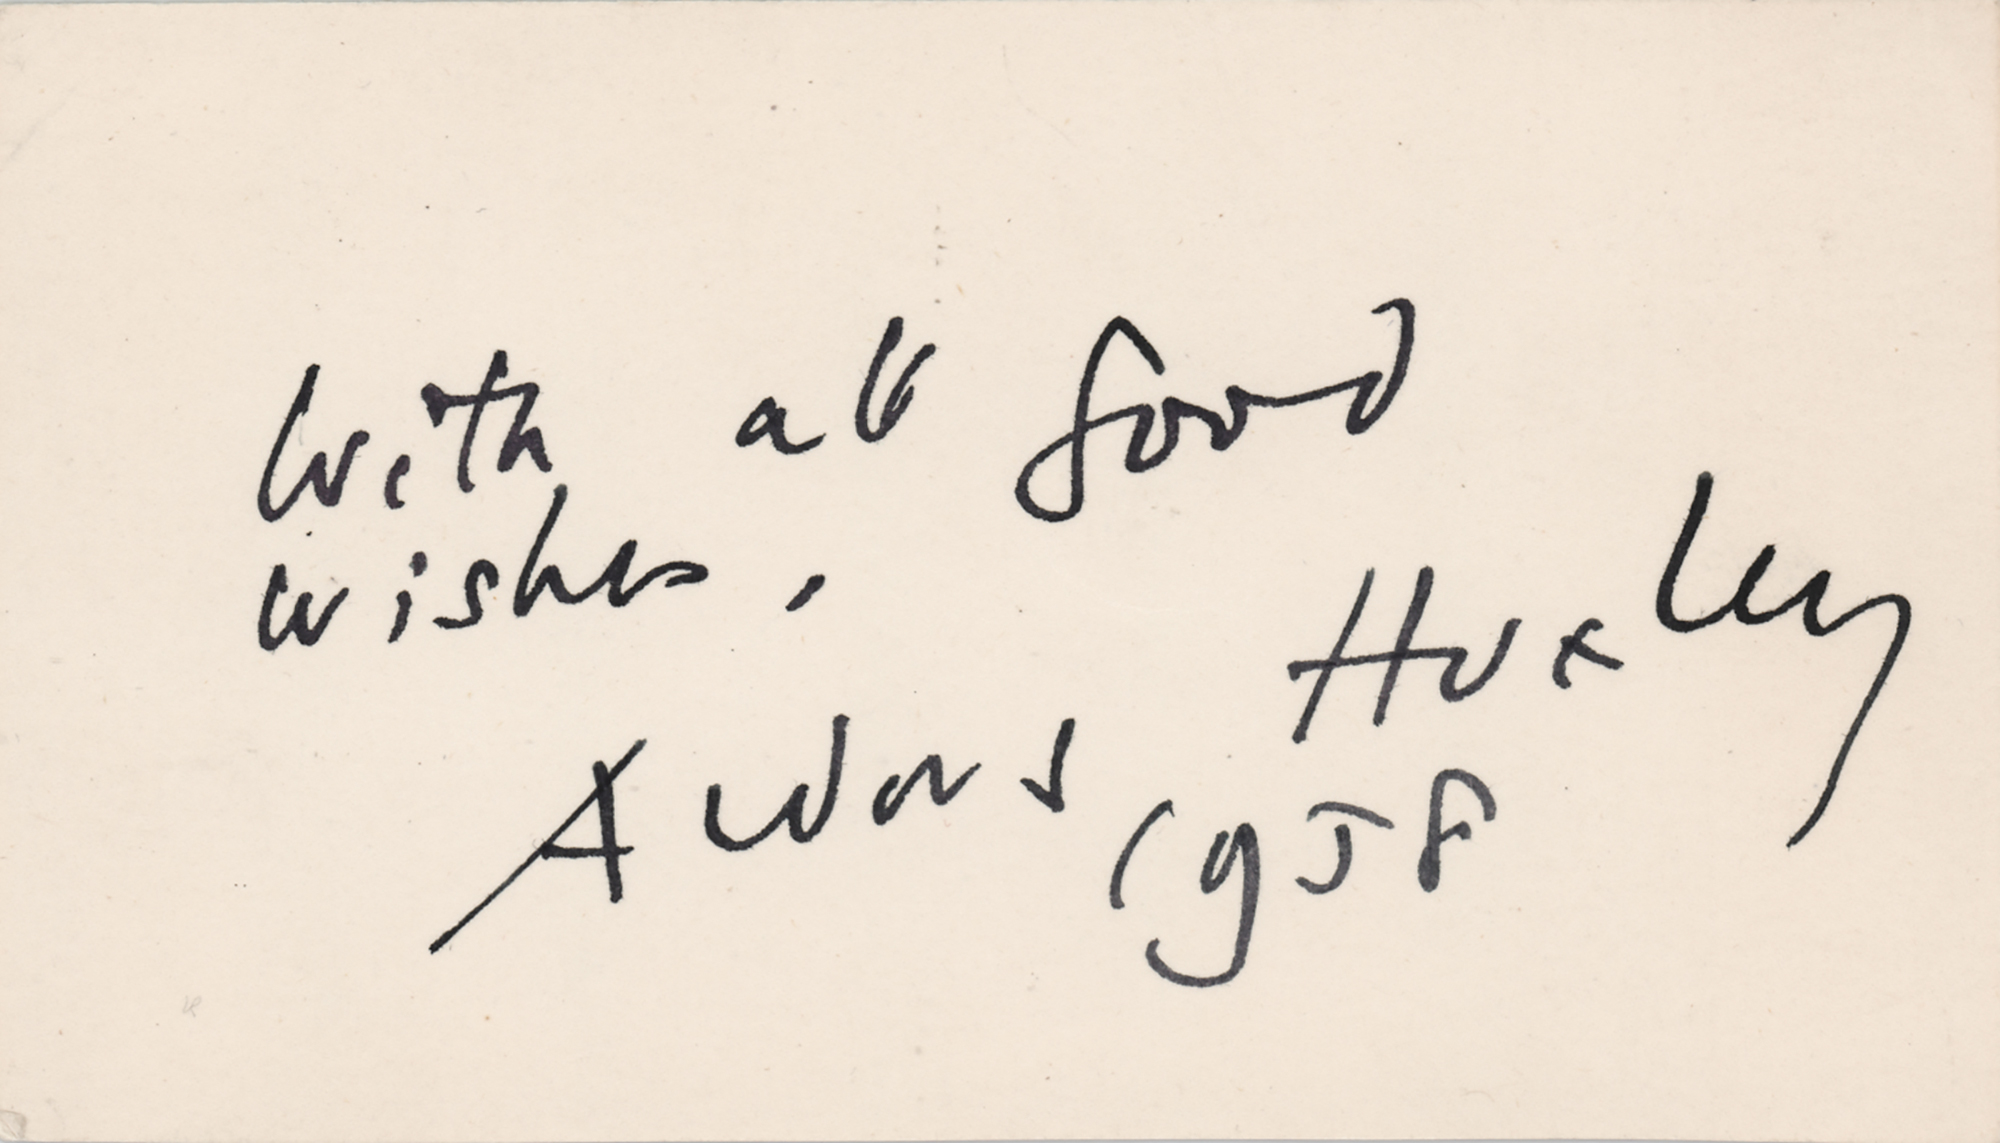 With all good
wishes,
Aldous Huxley
1958